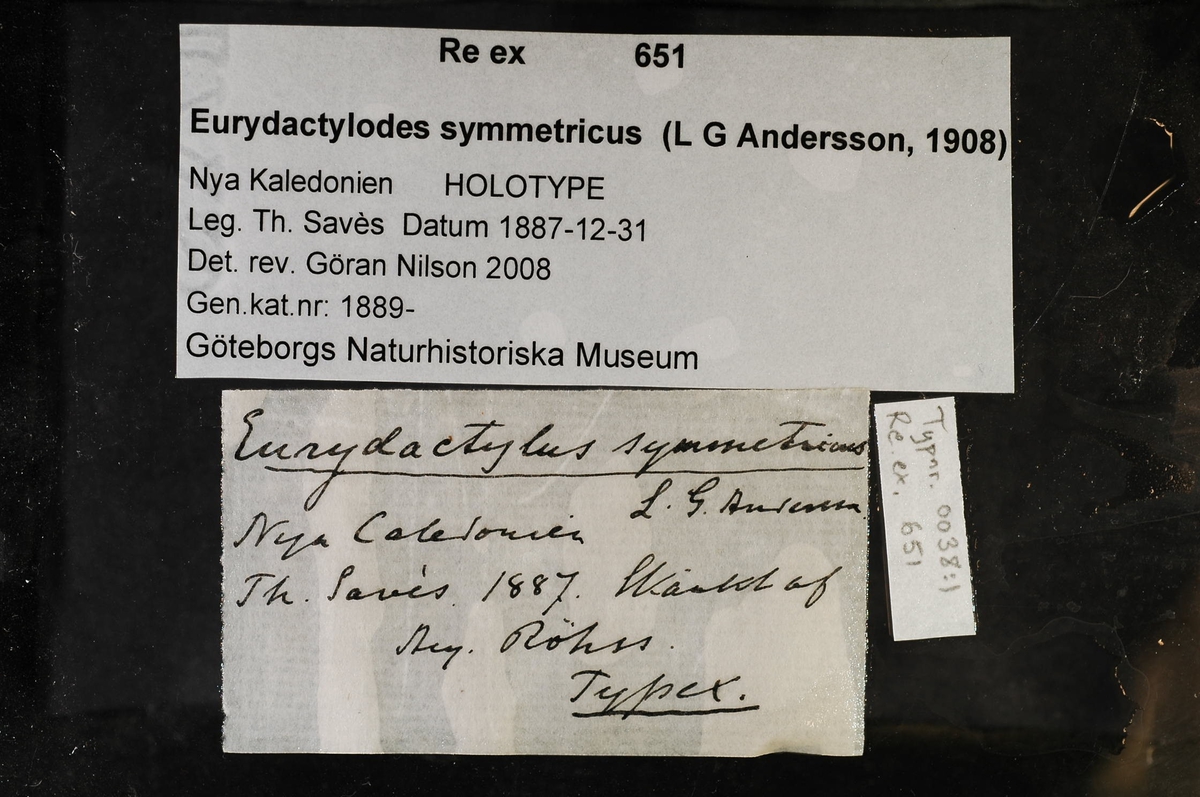 Re ex 651
Eurydactylodes symmetricus (L G Andersson, 1908)
Nya Kaledonien HOLOTYPE
Leg. Th. Savès Datum 1887-12-31
Det. rev. Göran Nilson 2008
Gen.kat.nr: 1889-
Göteborgs Naturhistoriska Museum
Eurydactylus symmetricus
L. G. Andersson.
Nya Caledonien
Th. Savès. 1887. Skänkt af
Aug. Röhss.
Typex.
Typnr. 0038:1
Re. ex. 651